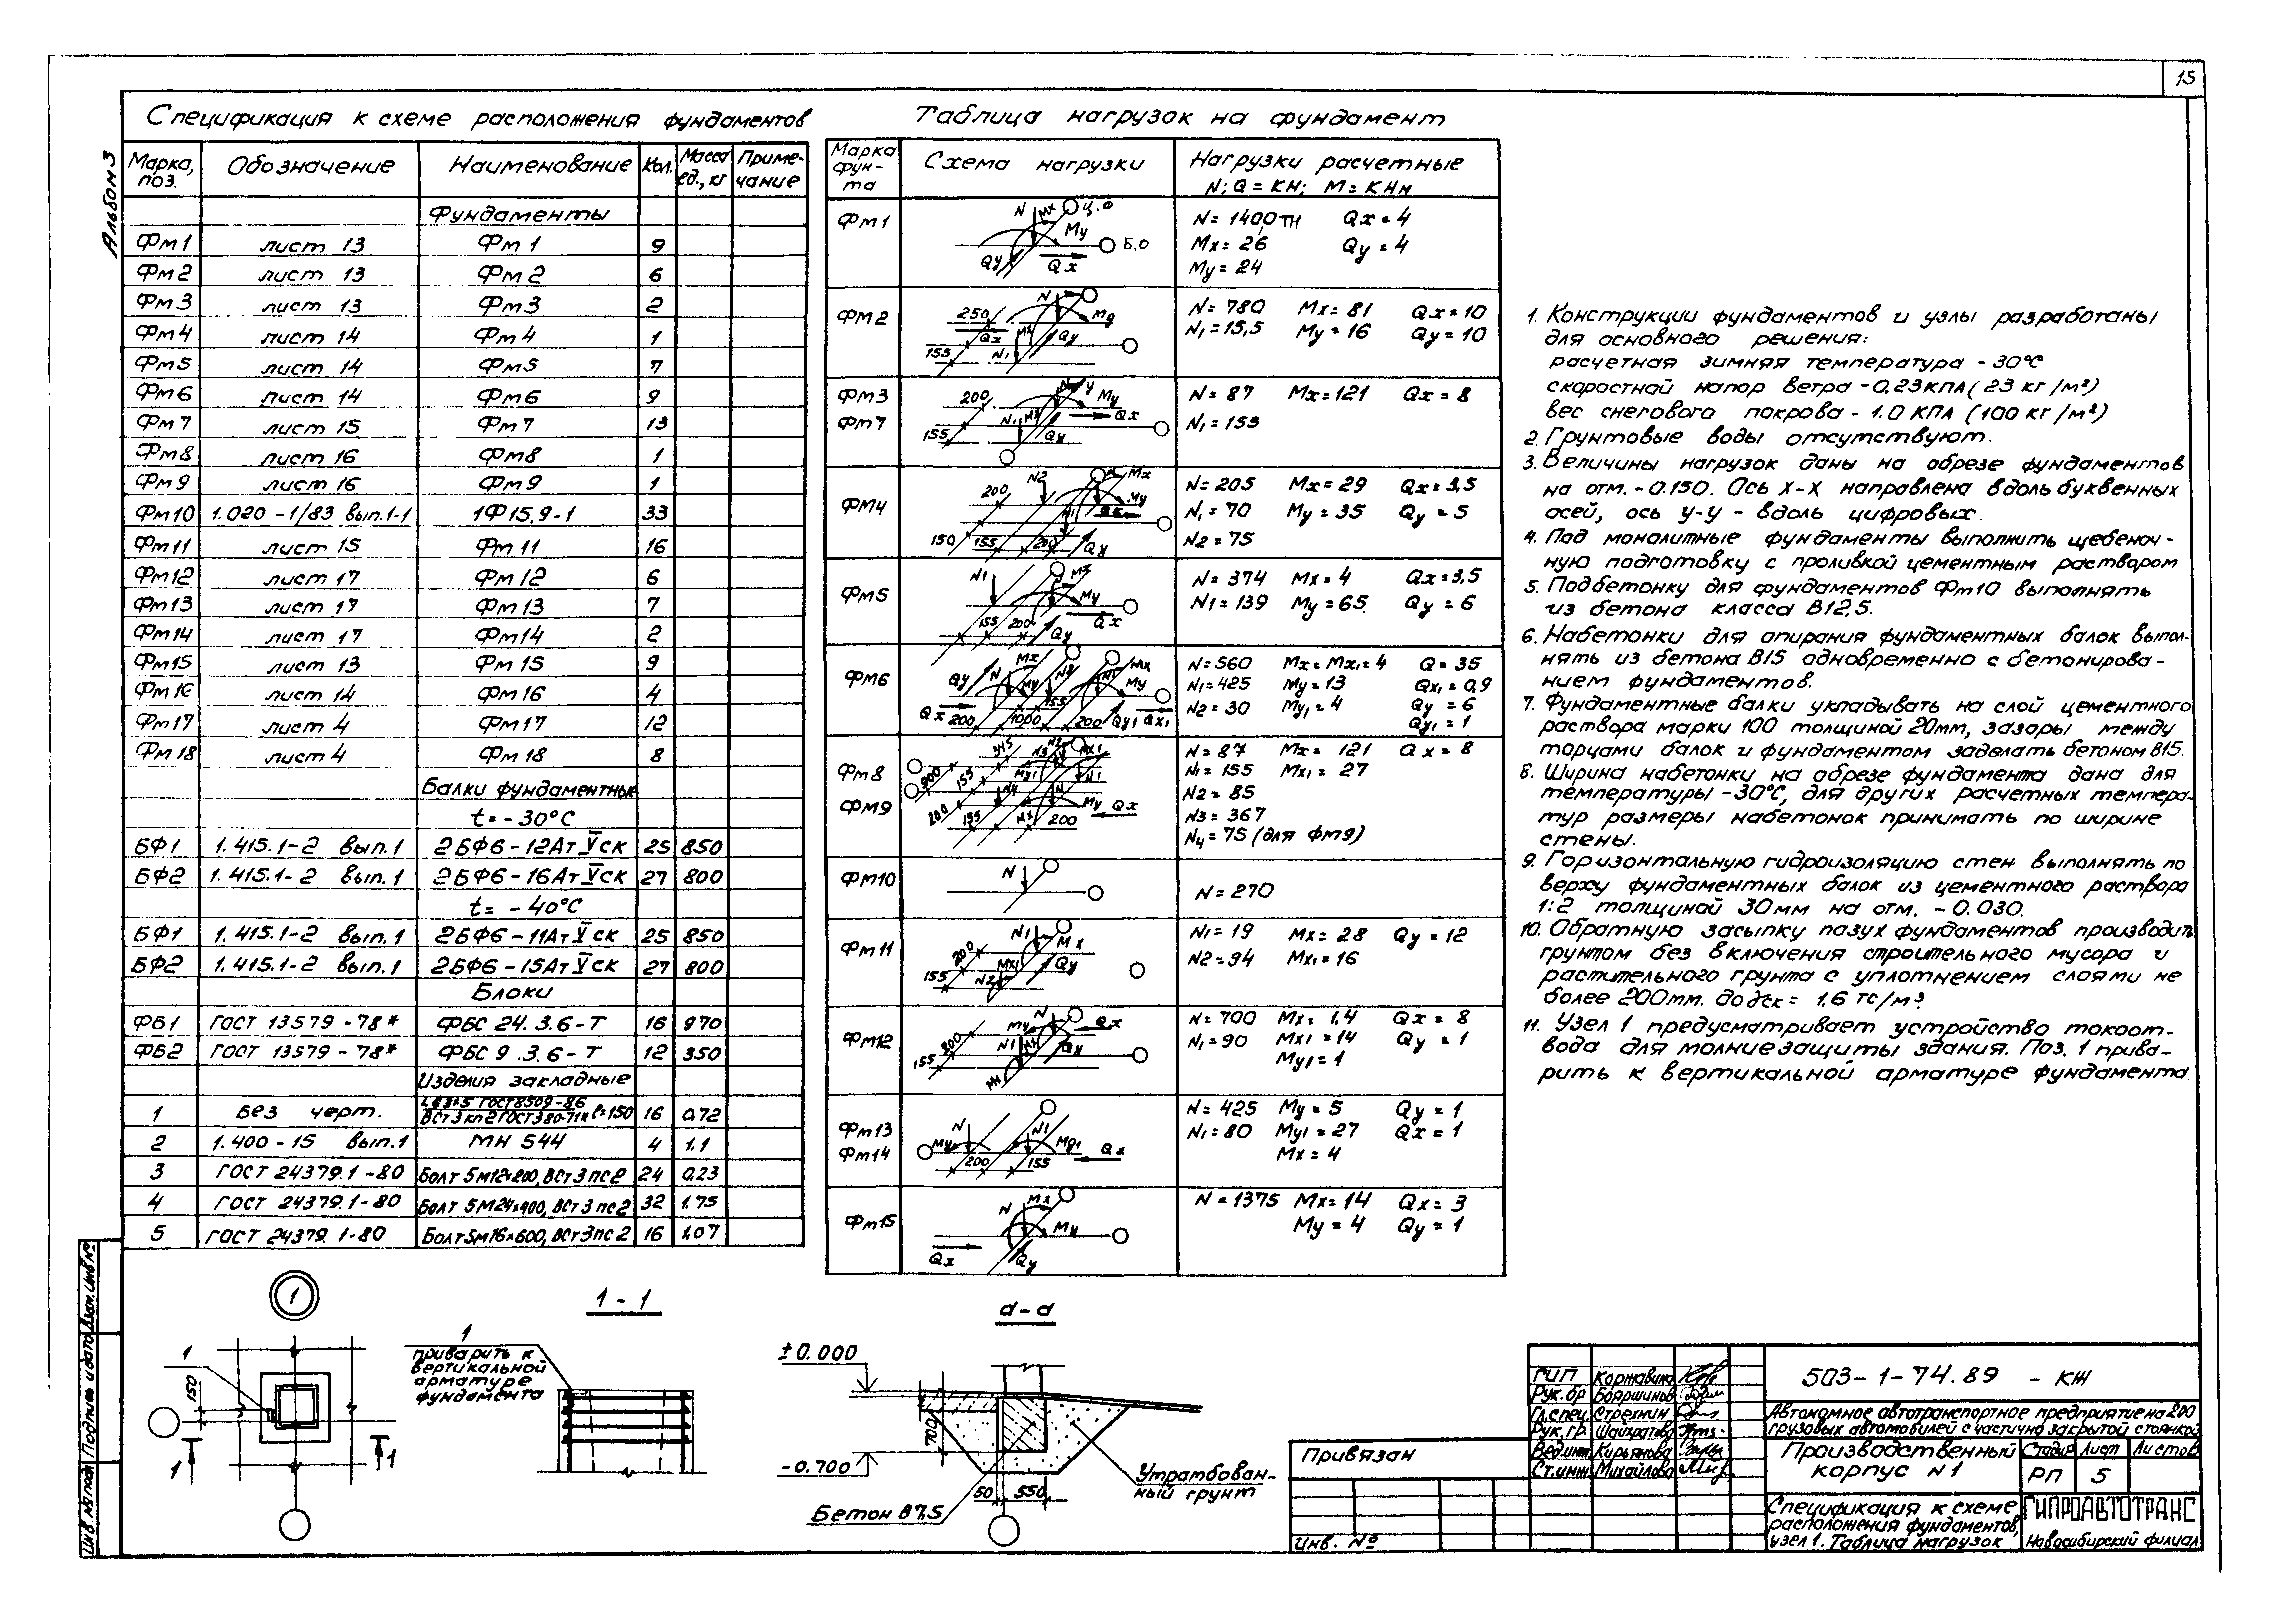 15
Альбом 3
Спецификация к схеме расположения фундаментов
Марка, поз. Обозначение Наименование Кол. Масса ед., кг Примечание
Фундаменты
Фм1 лист 13 Фм 1 9
Фм2 лист 13 Фм 2 6
Фм3 лист 13 Фм3 2
Фм4 лист 14 Фм4 1
Фм5 лист 14 Фм5 7
Фм6 лист 14 Фм6 9
Фм7 лист 15 Фм7 13
Фм8 лист 16 Фм8 1
Фм9 лист 16 Фм9 1
Фм10 1.020-1/83 вып.1-1 1Ф15.9-1 33
Фм11 лист 15 Фм 11 16
Фм12 лист 17 Фм 12 6
Фм13 лист 17 Фм 13 7
Фм14 лист 17 Фм14 2
Фм15 лист 13 Фм 15 9
Фм16 лист 14 Фм 16 4
Фм17 лист 4 Фм17 12
Фм18 лист 4 Фм 18 8
Балки фундаментные
t=-30°С
БФ1 1.415.1-2 вып.1 2БФ6-12АтVск 25 850
БФ2 1.415.1-2 вып.1 2БФ6-16АтVск 27 800
t= -40°С
БФ1 1.415.1-2 вып.1 2БФ6-11АтVск 25 850
БФ2 1.415.1-2 вып.1 2БФ6-15АтVск 27 800
Блоки
ФБ1 ГОСТ 13579-78* ФБС 24.3.6-Т 16 970
ФБ2 ГОСТ 13579-78* ФБС 9.3.6-Т 12 350
Изделия закладные
1 Без черт. ГОСТ8509-86 ВСт3кп2ГОСТ380-71* ℓ=150 16 0.72
2 1.400-15 вып.1 МН 544 4 1.1
3 ГОСТ 24379.1-80 Болт 5М12×200, ВСт3пс2 24 0.23
4 ГОСТ 24379.1-80 Болт 5М24×400, ВСт3пс2 32 1.75
5 ГОСТ 24379.1-80 Болт5М16×600, ВСт3пс2 16 1.07
Таблица нагрузок на фундамент
Марка фун-та Схема нагрузки Нагрузки расчетные N; Q = КН; М = КНм
Фм1 N Mx Ц.Ф My Б.О Qy Qx
N = 1400 тн Qx = 4
Mx = 26 Qy = 4
My = 24
Фм2 250 Qx 155 N1 Mx N My Qy
N = 780 Mx = 81 Qx = 10
N1 = 15,5 My = 16 Qy = 10
Фм3 Фм7 200 155 N1 Mx N У My Qx Qy
N = 87 Mx = 121 Qx = 8
N1 = 155
Фм4 200 N2 N Mx My Qx N1 150 155 200 Qy
N = 205 Mx = 29 Qx = 3,5
N1 = 70 My = 35 Qy = 5
N2 = 75
Фм5 N1 Mx My 155 200 Qy Qx
N = 374 Mx = 4 Qx = 3,5
N1 = 139 My = 65 Qy = 6
Фм6 Qy Mx N2 N1 Mx My Qx 200 1000 155 200 Qy1 Qx1
N = 560 Mx = Mx1 = 4 Q = 35
N1 = 425 My = 13 Qx1 = 0,9
N2 = 30 My1 = 4 Qy = 6
Qy1 = 1
Фм8 Фм9 800 155 345 N3 N2 Mx1 My1 N1 N4 N My Qx 200 155 Mx 200
N = 87 Mx = 121 Qx = 8
N1 = 155 Mx1 = 27
N2 = 85
N3 = 367
N4 = 75 (для Фм9)
Фм10 N
N = 270
Фм11 200 155 N1 Mx Mx1 N2 Qy
N1 = 19 Mx = 28 Qy = 12
N2 = 94 Mx1 = 16
Фм12 800 155 My N1 Qx Qy
N = 700 Mx = 1,4 Qx = 8
N1 = 90 Mx1 = 14 Qy = 1
My1 = 1
Фм13 Фм14 My N N1 My1 200 155 Qx
N = 425 My = 5 Qy = 1
N1 = 80 My1 = 27 Qx = 1
Mx = 4
Фм15 N Mx My Qx Qy
N = 1375 Mx = 14 Qx = 3
My = 4 Qy = 1
1. Конструкции фундаментов и узлы разработаны
для основного решения:
расчетная зимняя температура - 30°С
скоростной напор ветра - 0,23 КПА (23 кг/м²)
вес снегового покрова - 1.0 КПА (100 кг/м²)
2. Грунтовые воды отсутствуют.
3. Величины нагрузок даны на обрезе фундаментов
на отм. -0.150. Ось х-х направлена вдоль буквенных
осей, ось у-у - вдоль цифровых.
4. Под монолитные фундаменты выполнить щебеноч-
ную подготовку с проливкой цементным раствором
5. Подбетонку для фундаментов Фм10 выполнять
из бетона класса В12,5.
6. Набетонки для опирания фундаментных балок выпол-
нять из бетона В15 одновременно с бетонирова-
нием фундаментов.
7. Фундаментные балки укладывать на слой цементного
раствора марки 100 толщиной 20мм, зазоры между
торцами балок и фундаментом заделать бетоном В15.
8. Ширина набетонки на обрезе фундамента дана для
температуры -30°С, для других расчетных темпера-
тур размеры набетонок принимать по ширине
стены.
9. Горизонтальную гидроизоляцию стен выполнять по
верху фундаментных балок из цементного раствора
1:2 толщиной 30мм на отм. -0.030.
10. Обратную засыпку пазух фундаментов производить
грунтом без включения строительного мусора и
растительного грунта с уплотнением слоями не
более 200мм. до γск = 1,6 тс/м³.
11. Узел 1 предусматривает устройство токоот-
вода для молниезащиты здания. Поз. 1 прива-
рить к вертикальной арматуре фундамента.
1
1
150
1 1
1-1
1
приварить к
вертикальной
арматуре
фундамента
d-d
±0.000
700
-0.700
50 550
Бетон В7,5
Утрамбован-
ный грунт
Привязан
Инв. №
ГИП
Рук.бр. Бояршинов
Гл.спец. Стрехнин
Рук.гр. Шайхратова
Вед.инж. Кирьянова
Ст.инж. Михайлова
503-1-74.89 -КЖ
Автономное автотранспортное предприятие на 200
грузовых автомобилей с частично закрытой стоянкой
Производственный корпус №1
Стадия Лист Листов
РП 5
Спецификация к схеме
расположения фундаментов,
узел 1. Таблица нагрузок
ГИПРОАВТОТРАНС
Новосибирский филиал
Инв.№ подл. Подпись и дата Взам.инв.№